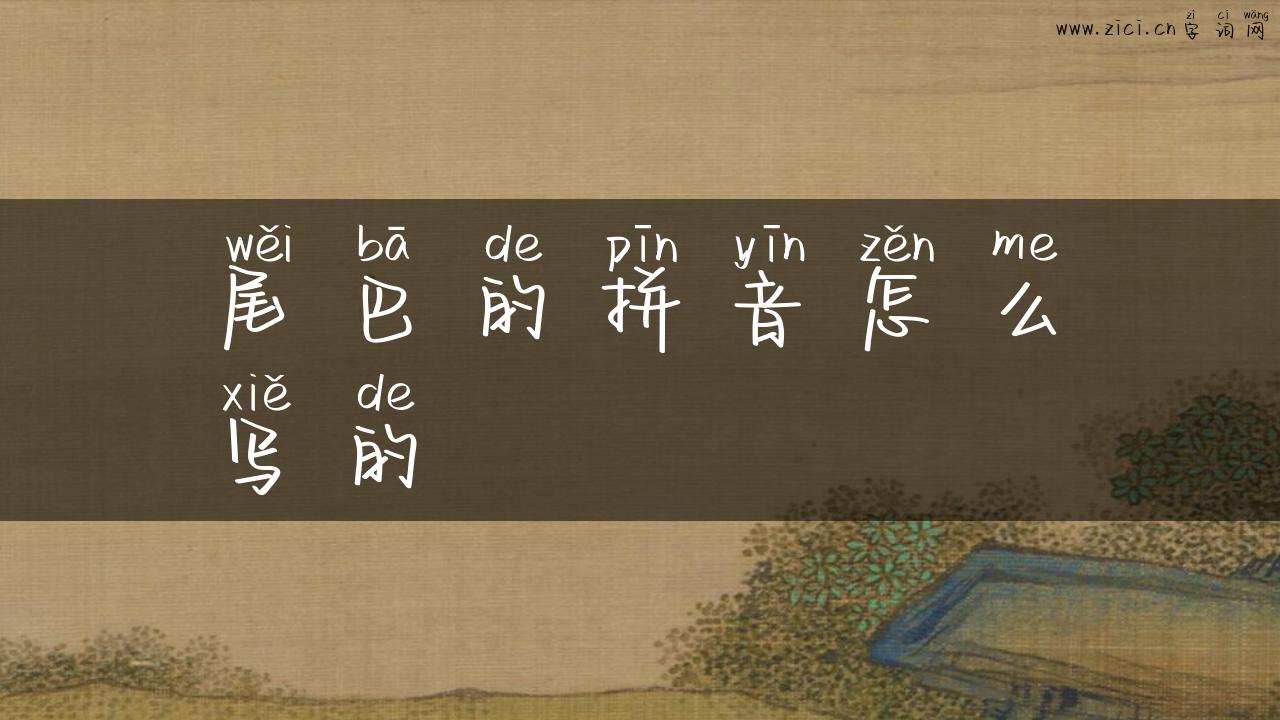 zì cí wǎng
www.zici.cn 字词网
wěi bā de pīn yīn zěn me
尾巴的拼音怎么
xiě de
写的